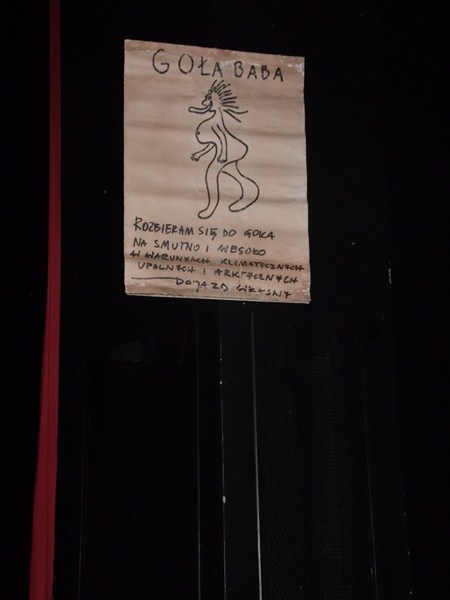 GOŁA BABA
ROZBIERAM SIĘ DO GOŁA
NA SMUTNO I WESOŁO
W WARUNKACH KLIMATYCZNYCH
UPALNYCH I ARKTYCZNYCH
DOJAZD WŁASNY